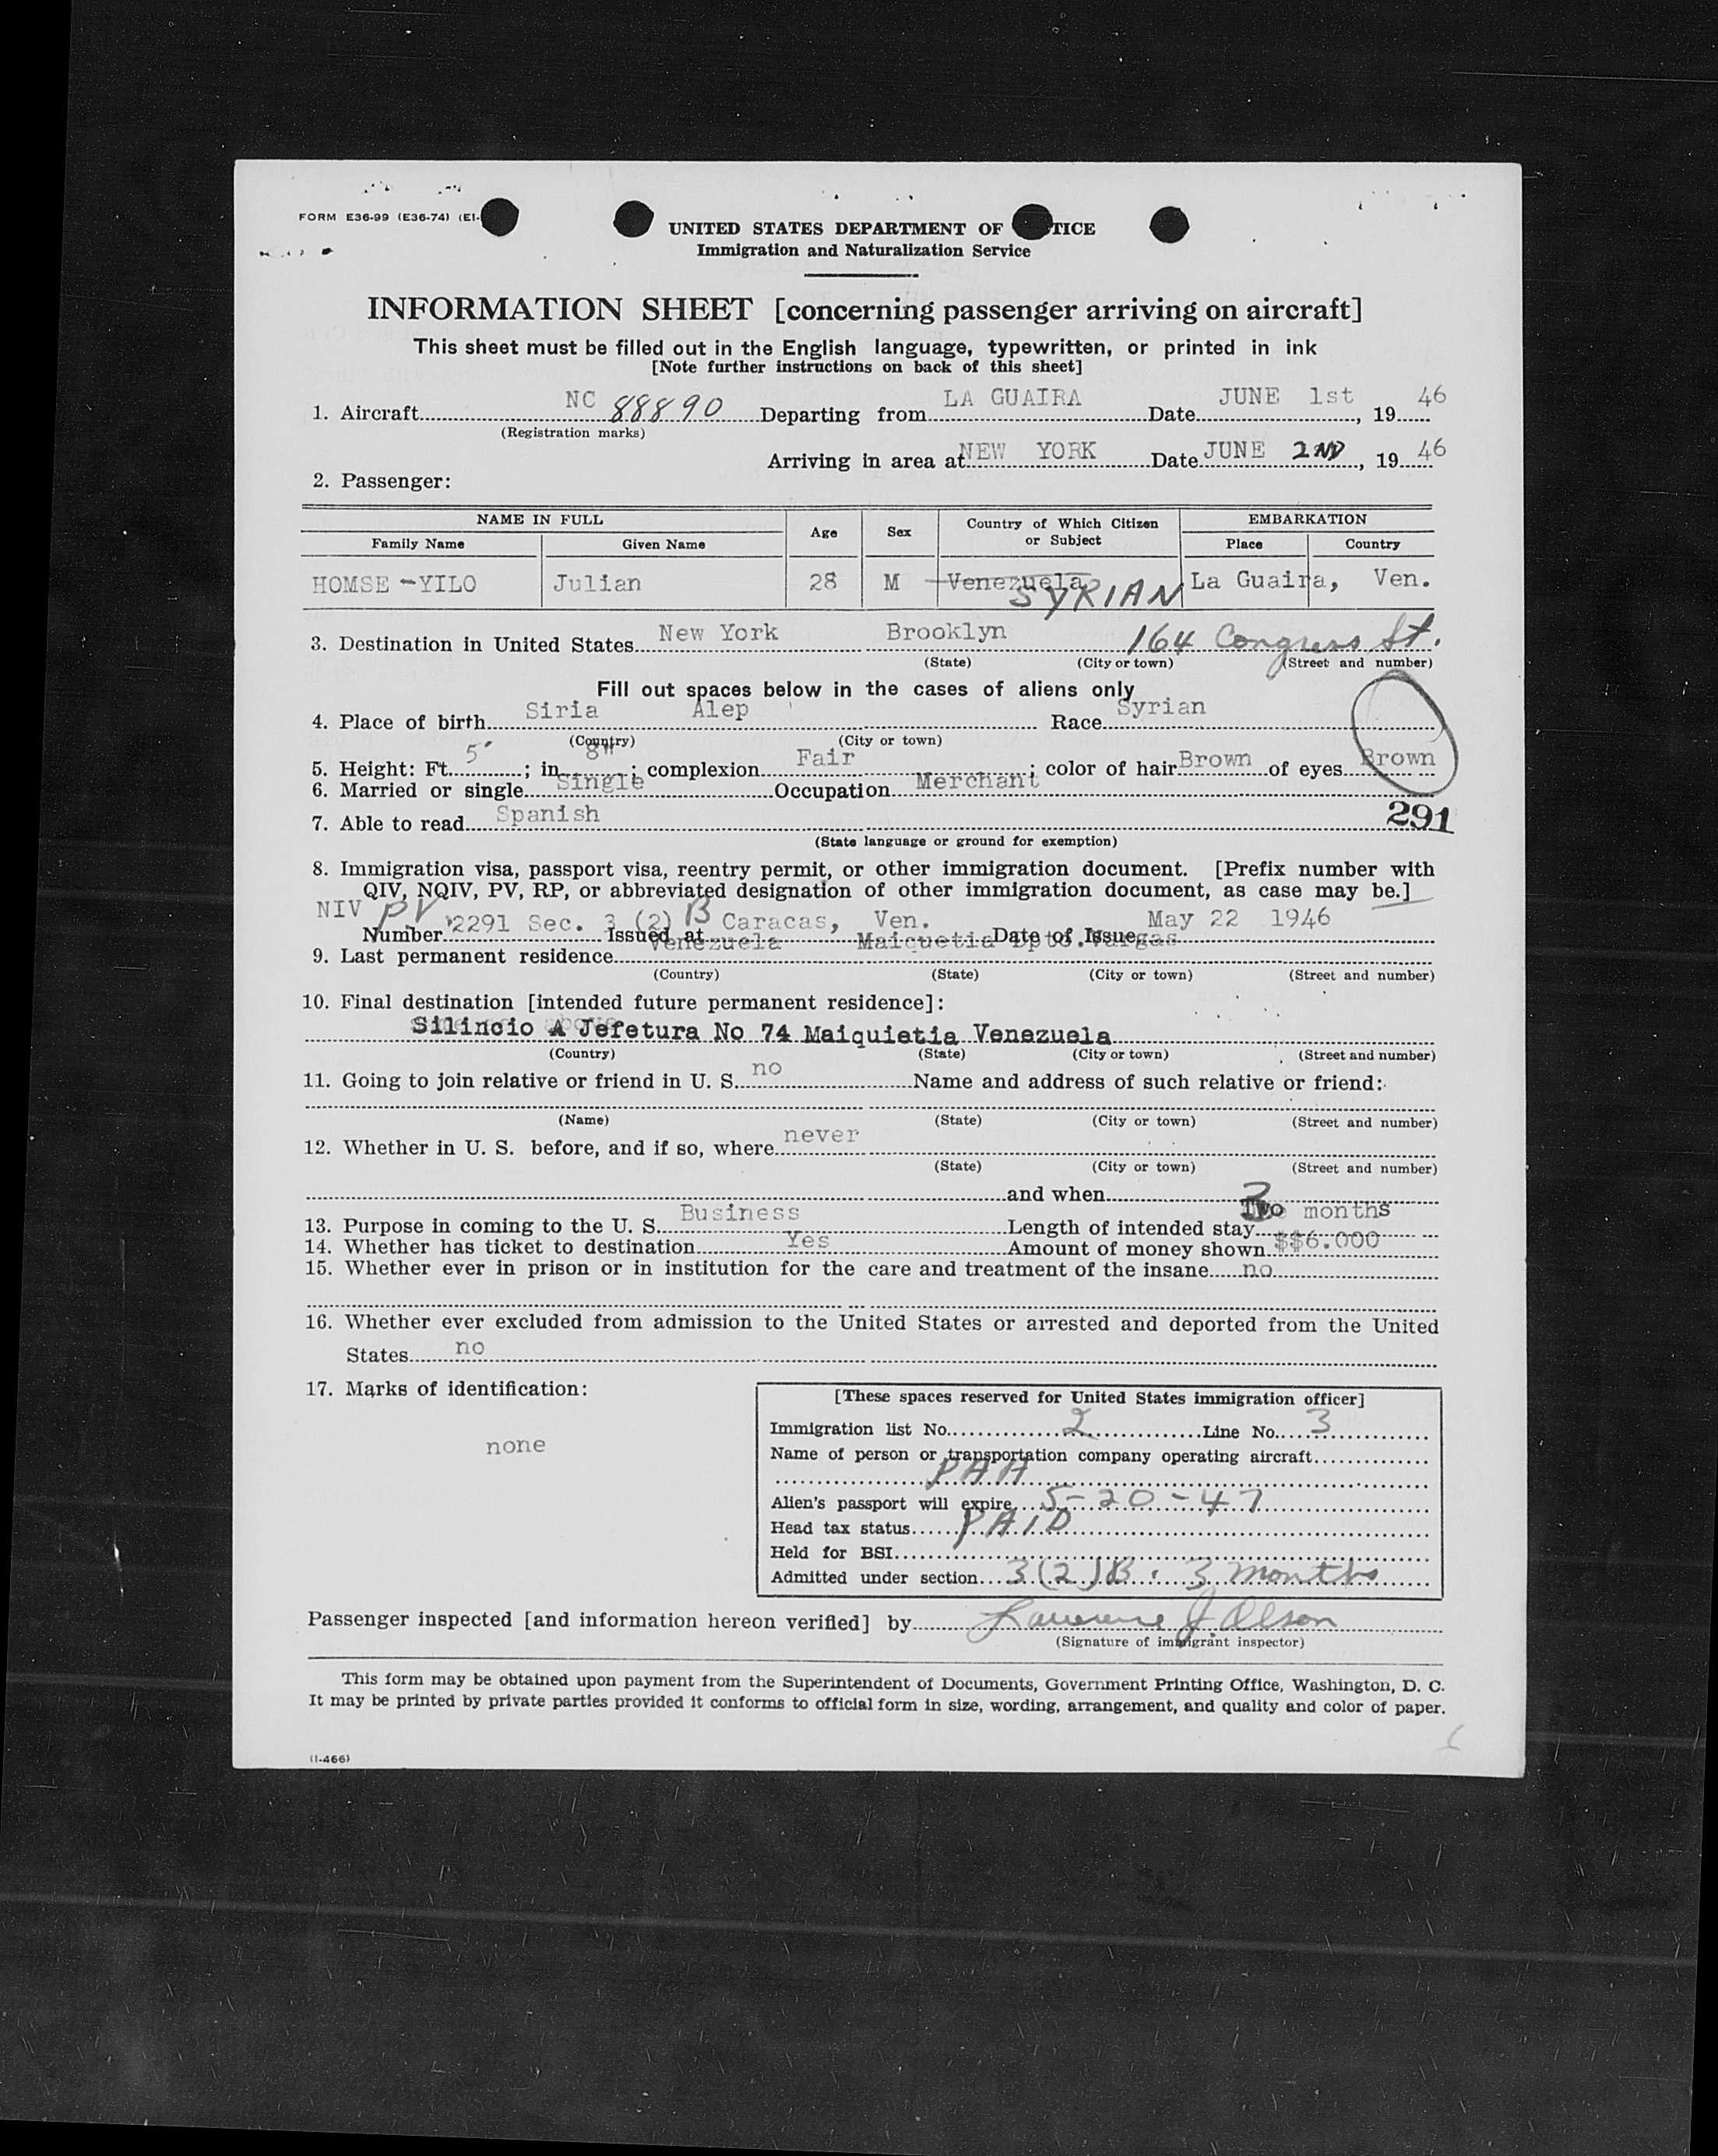 FORM E36-99 (E36-74) (E1-
UNITED STATES DEPARTMENT OF TICE
Immigration and Naturalization Service
INFORMATION SHEET [concerning passenger arriving on aircraft]
This sheet must be filled out in the English language, typewritten, or printed in ink
[Note further instructions on back of this sheet]
1. Aircraft NC 88890 Departing from LA GUAIRA Date JUNE 1st, 19 46
(Registration marks)
Arriving in area at NEW YORK Date JUNE 2ND, 19 46
2. Passenger:
NAME IN FULL Age Sex Country of Which Citizen or Subject EMBARKATION
Family Name Given Name Place Country
HOMSE-YILO Julian 28 M Venezuela SYRIAN La Guaira, Ven.
3. Destination in United States New York Brooklyn 164 Congress St.
(State) (City or town) (Street and number)
Fill out spaces below in the cases of aliens only
4. Place of birth Siria Alep Race Syrian
(Country) (City or town)
5. Height: Ft. 5'; in 8"; complexion Fair; color of hair Brown of eyes Brown
6. Married or single Single Occupation Merchant
7. Able to read Spanish 291
(State language or ground for exemption)
8. Immigration visa, passport visa, reentry permit, or other immigration document. [Prefix number with
QIV, NQIV, PV, RP, or abbreviated designation of other immigration document, as case may be.]
NIV PV
Number 2291 Sec. 3 (2) B Issued at Caracas, Ven. Date of Issue May 22 1946
9. Last permanent residence Venezuela Maiquetia Dpto. Vargas
(Country) (State) (City or town) (Street and number)
10. Final destination [intended future permanent residece]:
Silincio A Jefetura No 74 Maiquietia Venezuela
(Country) (State) (City or town) (Street and number)
11. Going to join relative or friend in U. S. no Name and address of such relative or friend:
(Name) (State) (City or town) (Street and number)
12. Whether in U. S. before, and if so, where never
(State) (City or town) (Street and number)
and when
13. Purpose in coming to the U. S. Business Length of intended stay Two 3 months
14. Whether has ticket to destination Yes Amount of money shown $$6.000
15. Whether ever in prison or in institution for the care and treatment of the insane no
16. Whether ever excluded from admission to the United States or arrested and deported from the United
States no
17. Marks of identification:
none
[These spaces reserved for United States immigration officer]
Immigration list No. 2 Line No. 3
Name of person or transportation company operating aircraft
PAA
Alien's passport will expire 5-20-47
Head tax status PAID
Held for BSI
Admitted under section 3(2)B. 3 months
Passenger inspected [and information hereon verified] by Lawrence J. Olson
(Signature of immigrant inspector)
This form may be obtained upon payment from the Superintendent of Documents, Government Printing Office, Washington, D. C.
It may be printed by private parties provided it conforms to official form in size, wording, arrangement, and quality and color of paper.
(I-466)